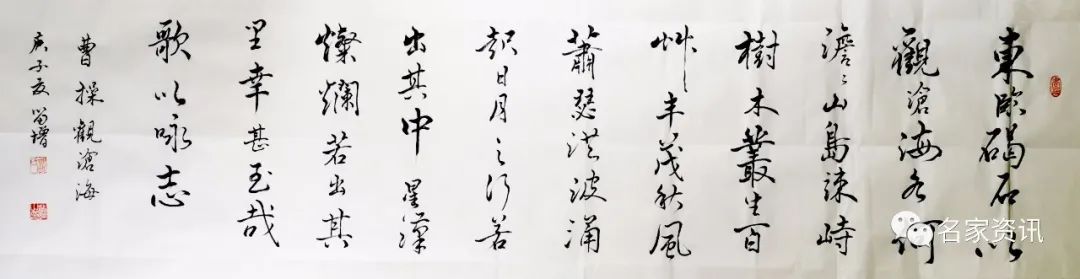 東臨碣石以
觀滄海水何
澹〻山島竦峙
樹木叢生百
艸丰茂秋風
蕭瑟洪波涌
起日月之行若
出其中星漢
燦爛若出其
里幸甚至哉
歌以咏志
曹操觀滄海
庚子夏
名家资讯